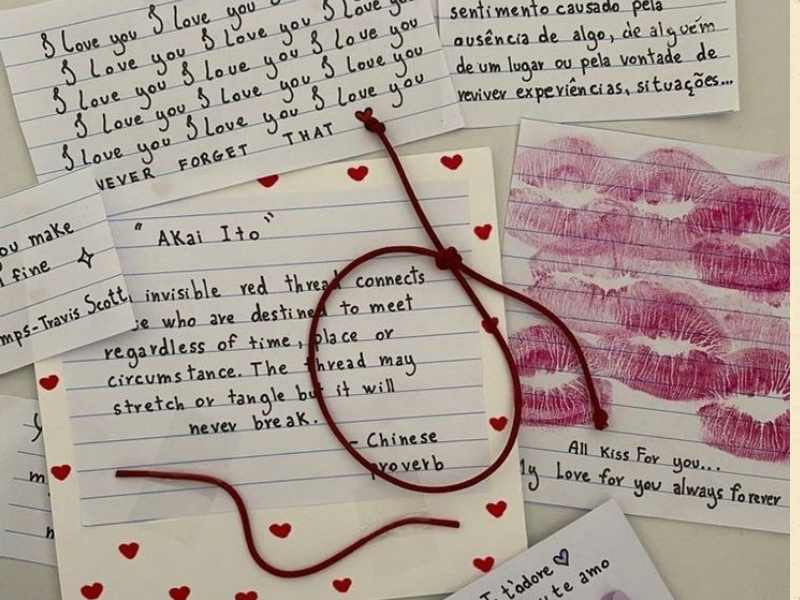 I Love you I Love you I Love you
I Love you I Love you I Love you
I Love you I Love you I Love you
I Love you I Love you I Love you
I Love you I Love you I Love you
NEVER FORGET THAT
sentimento causado pela
ausência de algo, de alguém
de um lugar ou pela vontade de
reviver experiências, situações...
you make
fine
Travis Scott
"AKai Ito"
invisible red thread connects
who are destined to meet
regardless of time, place or
circumstance. The thread may
stretch or tangle but it will
never break.
- Chinese
proverb
All Kiss For you...
My Love for you always forever
t'adore
te amo